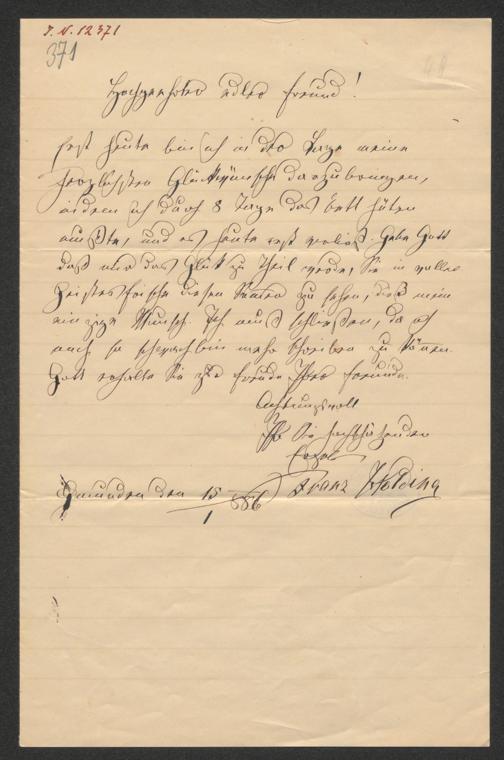 J. N. 12371
371
Hochgeehrter edler Freund!
Erst heute bin ich in der Lage meine
herzlichsten Glückwünsche darzubringen,
indem ich durch 8 Tage das Bett hüten
mußte, und es heute erst verließ. Gebe Gott
daß mir das Glück zu Theil werde, Sie in voller
Geistesfrische diesen zu sehen, dieß mein
einziger Wunsch. Ich muß schließen, da ich
noch so schwach bin mehr schreiben zu können.
Gott erhalte Sie zur Freude Ihrer Freunde.
Achtungsvoll
Ihr Sie hochschätzender
Franz
Gmunden den 15/1 886